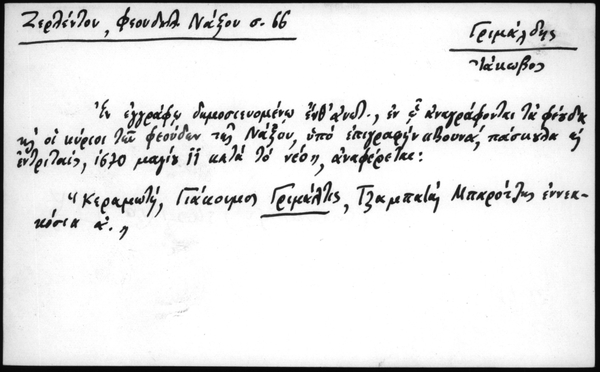 Ζερλέντου, Φεουδαλ. Νάξου σ. 66
Γριμάλδης
Ἰάκωβος
Ἐν ἐγγράφῳ δημοσιευομένῳ ἔνθ' ἀνωτ., ἐν ᾧ ἀναγράφονται τὰ φέουδα
καὶ οἱ κύριοι τῶν φεούδων τῆς Νάξου, ὑπὸ ἐπιγραφὴν πάσκουλα καὶ
ἐντρίταις, 1670 μαγίου 11 κατὰ τὸ νέον, ἀναφέρεται:
"Κεραμωτή, Γιάκουμος Γριμάλδης, Τζαμπατὰς Μπαρότζης ἐννεα-
κόσια α.„